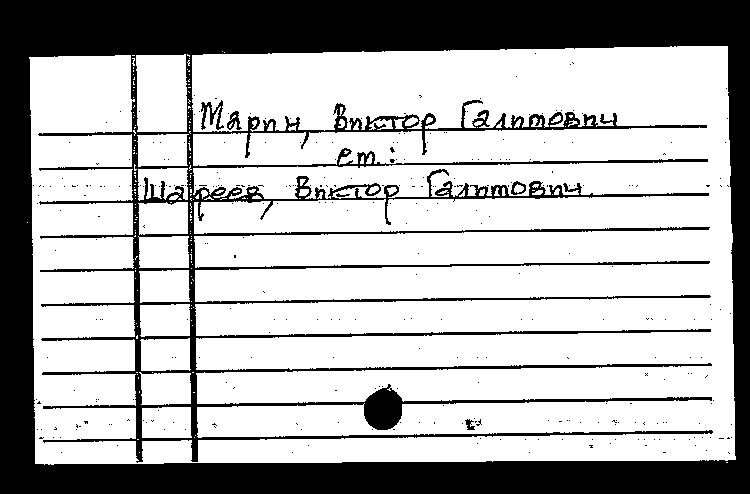 Марин, Виктор Галитович
см.:
Шареев, Виктор Галитович.